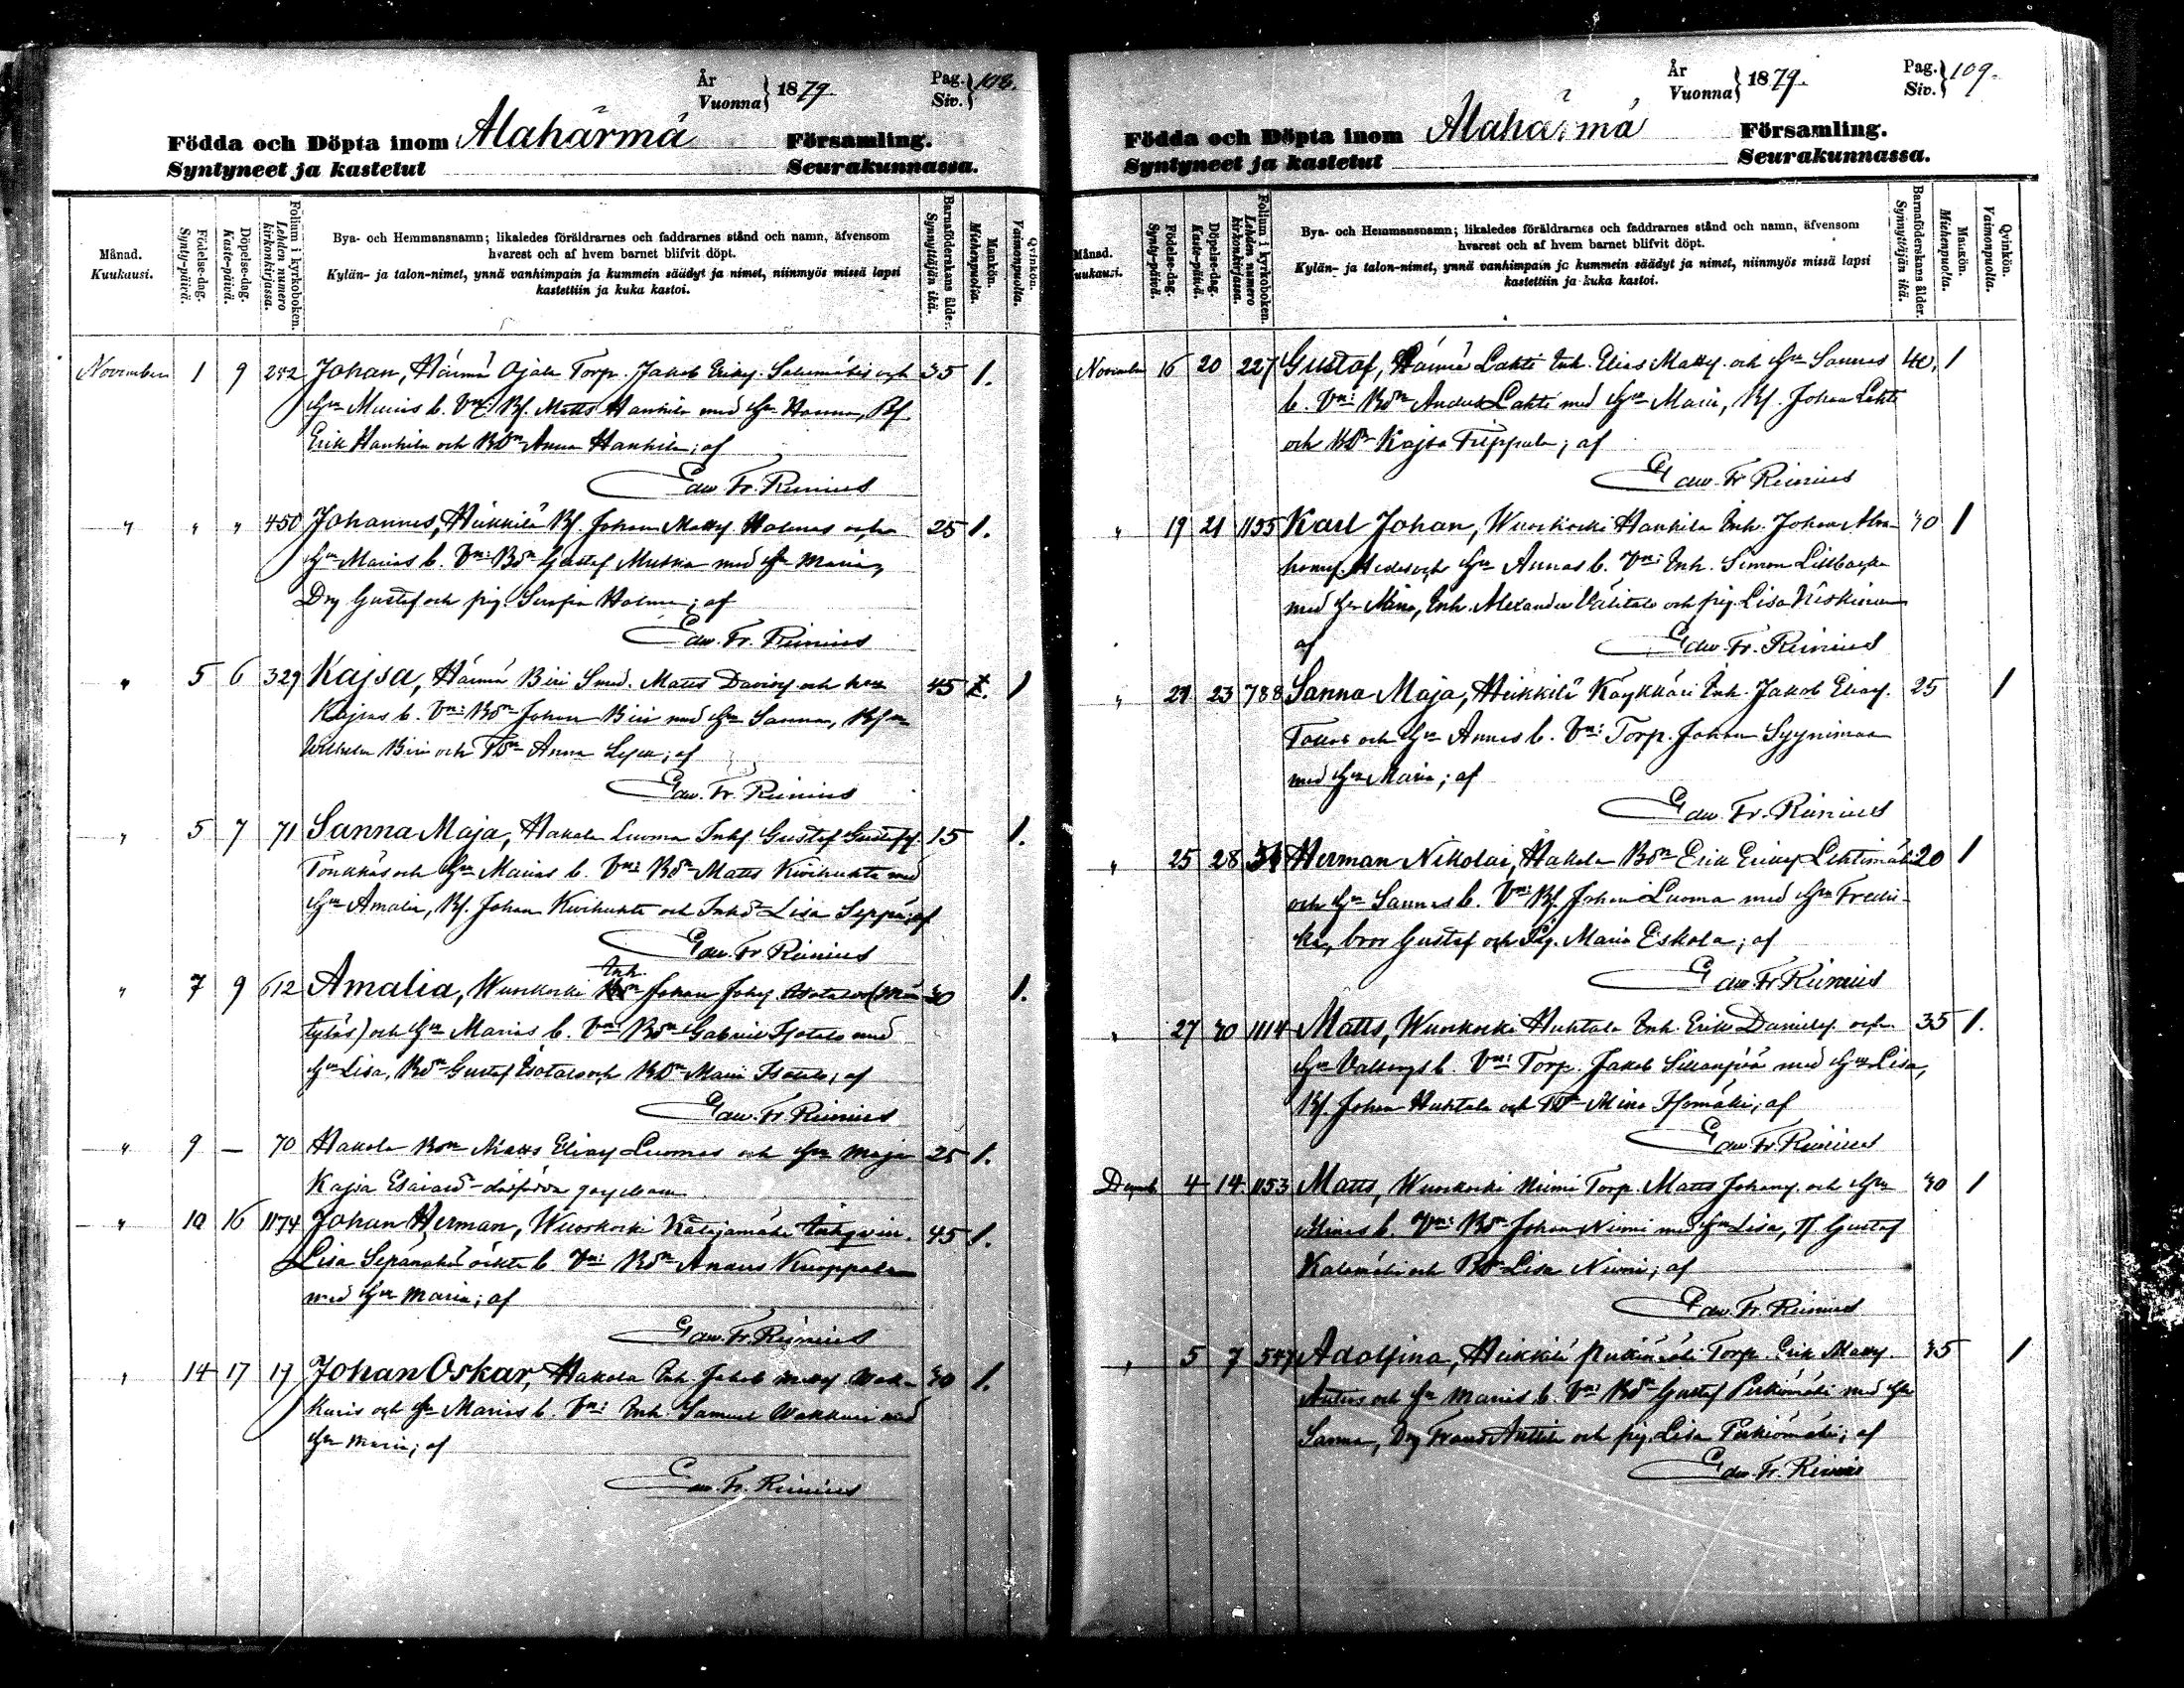 År
Vuonna } 1879. Pag. Siv. } 108.
Födda och Döpta inom Alahärmä Församling.
Syntyneet ja kastetut Seurakunnassa.
Månad. Kuukausi.
Födelse-dag. Synty-päivä.
Döpelse-dag. Kaste-päivä.
Folium i kyrkoboken. Lehden numero kirkonkirjassa.
Bya- och Hemmansnamn; likaledes föräldrarnes och faddrarnes stånd och namn, äfvensom
hvarest och af hvem barnet blifvit döpt.
Kylän- ja talon-nimet, ynnä vanhimpain ja kummein säädyt ja nimet, niinmyös missä lapsi
kastettiin ja kuka kastoi.
Barnaföderskans ålder. Synnyttäjän ikä.
Mankön. Miehenpuolia.
Qvinkön. Vaimonpuolia.
November 1 9 252 Johan, Härmä Ojala Torp. Jakob Eriks. och 35 1.
b. Vn: Bf. Matts Hanhila med Hu Hanna, Bf.
Erik Hanhila och Bdr Anna Hanhila; af
Edw. Fr. Reinius
" " " 450 Johannes, Heikkilä Bf. Johan Matts. Holmas och 25 1.
Hu Marias b. Vn: Bdn Gustaf Mutka med Hu Maria,
Drg Gustaf och pig. Holma; af
Edw. Fr. Reinius
" 5 6 329 Kajsa, Härmä Biri Smed. Matts och 45 1
Kajsas b. Vn: Bdn Johan Biri med Hu Sanna, Bfn
Wilhelm Biri och Anna; af
Edw. Fr. Reinius
" 5 7 71 Sanna Maja, Hakola Luoma Inhs Gustaf Gustafs. 15 1.
och Hu Marias b. Vn: Bdn Matts Kivihuhta med
Hu Amalia, Bf. Johan Kivihuhta och Lisa Seppä; af
Edw. Fr. Reinius
Inh.
" 7 9 612 Amalia, Wuoskoski Johan Johs. Isotalos 30 1.
och Hu Marias b. Vn: Bdn Gabriel Isotalo med
Hu Lisa, Bdn Gustaf Isotalo och Bdr Maria Isotalo; af
Edw. Fr. Reinius
" 9 — 70 Hakola Bdn Matts Elias. Luomas och Hu Maja 25 1.
Kajsa
" 10 16 1174 Johan Herman, Wuoskoski Katajamäki 45 1.
Lisa b Vn: Bdn Anders Kuoppala
med Hu Maria; af
Edw. Fr. Reinius
" 14 17 17 Johan Oskar, Hakola Inh. Jakob Matts. Wak- 30 1.
kuris och Hu Marias b. Vn: Inh. Samuel Wakkuri med
Hu Maria; af
Edw. Fr. Reinius
År
Vuonna } 1879. Pag. Siv. } 109.
Födda och Döpta inom Alahärmä Församling.
Syntyneet ja kastetut Seurakunnassa.
Månad. Kuukausi.
Födelse-dag. Synty-päivä.
Döpelse-dag. Kaste-päivä.
Folium i kyrkoboken. Lehden numero kirkonkirjassa.
Bya- och Hemmansnamn; likaledes föräldrarnes och faddrarnes stånd och namn, äfvensom
hvarest och af hvem barnet blifvit döpt.
Kylän- ja talon-nimet, ynnä vanhimpain ja kummein säädyt ja nimet, niinmyös missä lapsi
kastettiin ja kuka kastoi.
Barnaföderskans ålder. Synnyttäjän ikä.
Mankön. Miehenpuolia.
Qvinkön. Vaimonpuolia.
November 16 20 227 Gustaf, Härmä Lahti Inh. Elias Matts. och Hu Sannas 40. 1
b. Vn: Bdn Anders Lahti med Hu Maria, Bf. Johan Lahti
och Bdr Kajsa Filppula; af
Edw. Fr. Reinius
" 19 21 1155 Karl Johan, Wuoskoski Hanhila Inh. Johan Abra- 30 1
hams. och Hu Annas b. Vn: Inh. Simon Lillbacka
med Hu Mina, Inh. Alexander Välitalo och pig. Lisa
af Edw. Fr. Reinius
" 21 23 788 Sanna Maja, Heikkilä Köykkäri Inh. Jakob Elias. 25 1
och Hu Annas b. Vn: Torp. Johan Syynimaa
med Hu Maria; af
Edw. Fr. Reinius
" 25 28 Herman Nikolai, Hakola Bdn Erik Eriks. Lehtimäki 20 1
och Hu Sannas b. Vn: Bf. Johan Luoma med Hu Fredri-
ka, bror Gustaf och Pig. Maria Eskola; af
Edw. Fr. Reinius
" 27 30 1114 Matts, Wuoskoski Huhtala Inh. Erik Daniels. och 35 1.
Hu Valborgs b. Vn: Torp. Jakob Sillanpää med Hu Lisa,
Bf. Johan Huhtala och Mina; af
Edw. Fr. Reinius
Decemb. 4 14 1153 Matts, Wuoskoski Niemi Torp. Matts Johans. och Hu 30 1
Minas b. Vn: Bdn Johan Niemi med Hu Lisa, Gustaf
och Bdr Lisa Niemi; af
Edw. Fr. Reinius
" 5 7 547 Adolfina, Heikkilä Perkiömäki Torp. Erik Matts. 35 1
och Hu Marias b. Vn: Bdn Gustaf Perkiömäki med Hu
Sanna, Drg Frans Anttila och pig. Lisa Perkiömäki; af
Edw. Fr. Reinius